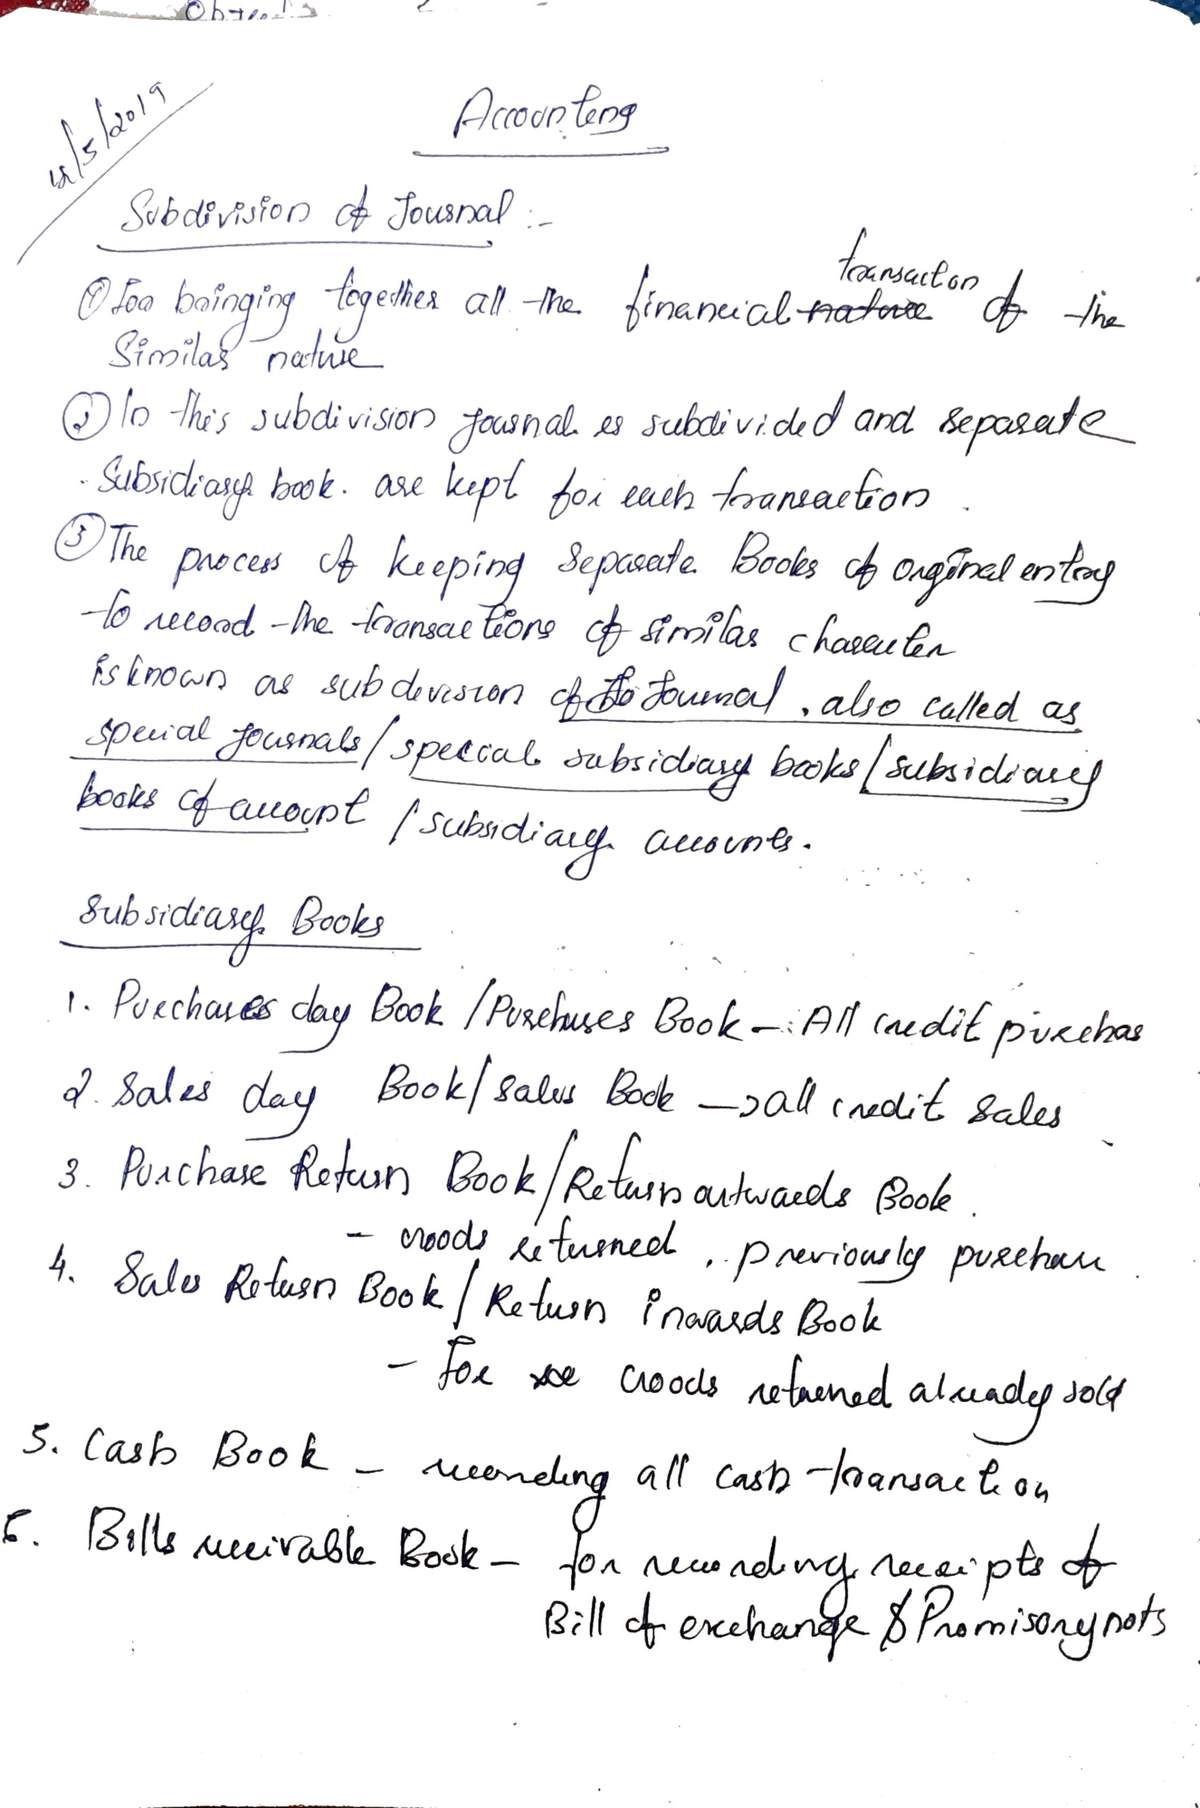 Accounting
Subdivision of Journal :-
① For bringing together all the financial transaction of the
Similar nature
② In this subdivision journal is subdivided and separate
Subsidiary book. are kept for each transaction.
③ The process of keeping Separate Books of original entry
to record the transactions of similar character
is known as subdivision of Journal, also called as
special journals/special subsidiary books/subsidiary
books of account /subsidiary accounts.
Subsidiary Books
1. Purchases day Book /Purchases Book - All credit purchas
2. Sales day Book/Sales Book → all credit sales
3. Purchase Return Book/Return outwards Book.
- Goods returned, previously purchase
4. Sales Return Book/Return inwards Book
- For Goods returned already sold
5. Cash Book - recording all cash transaction
6. Bills receivable Book - for recording receipts of
Bill of exchange & Promisory nots